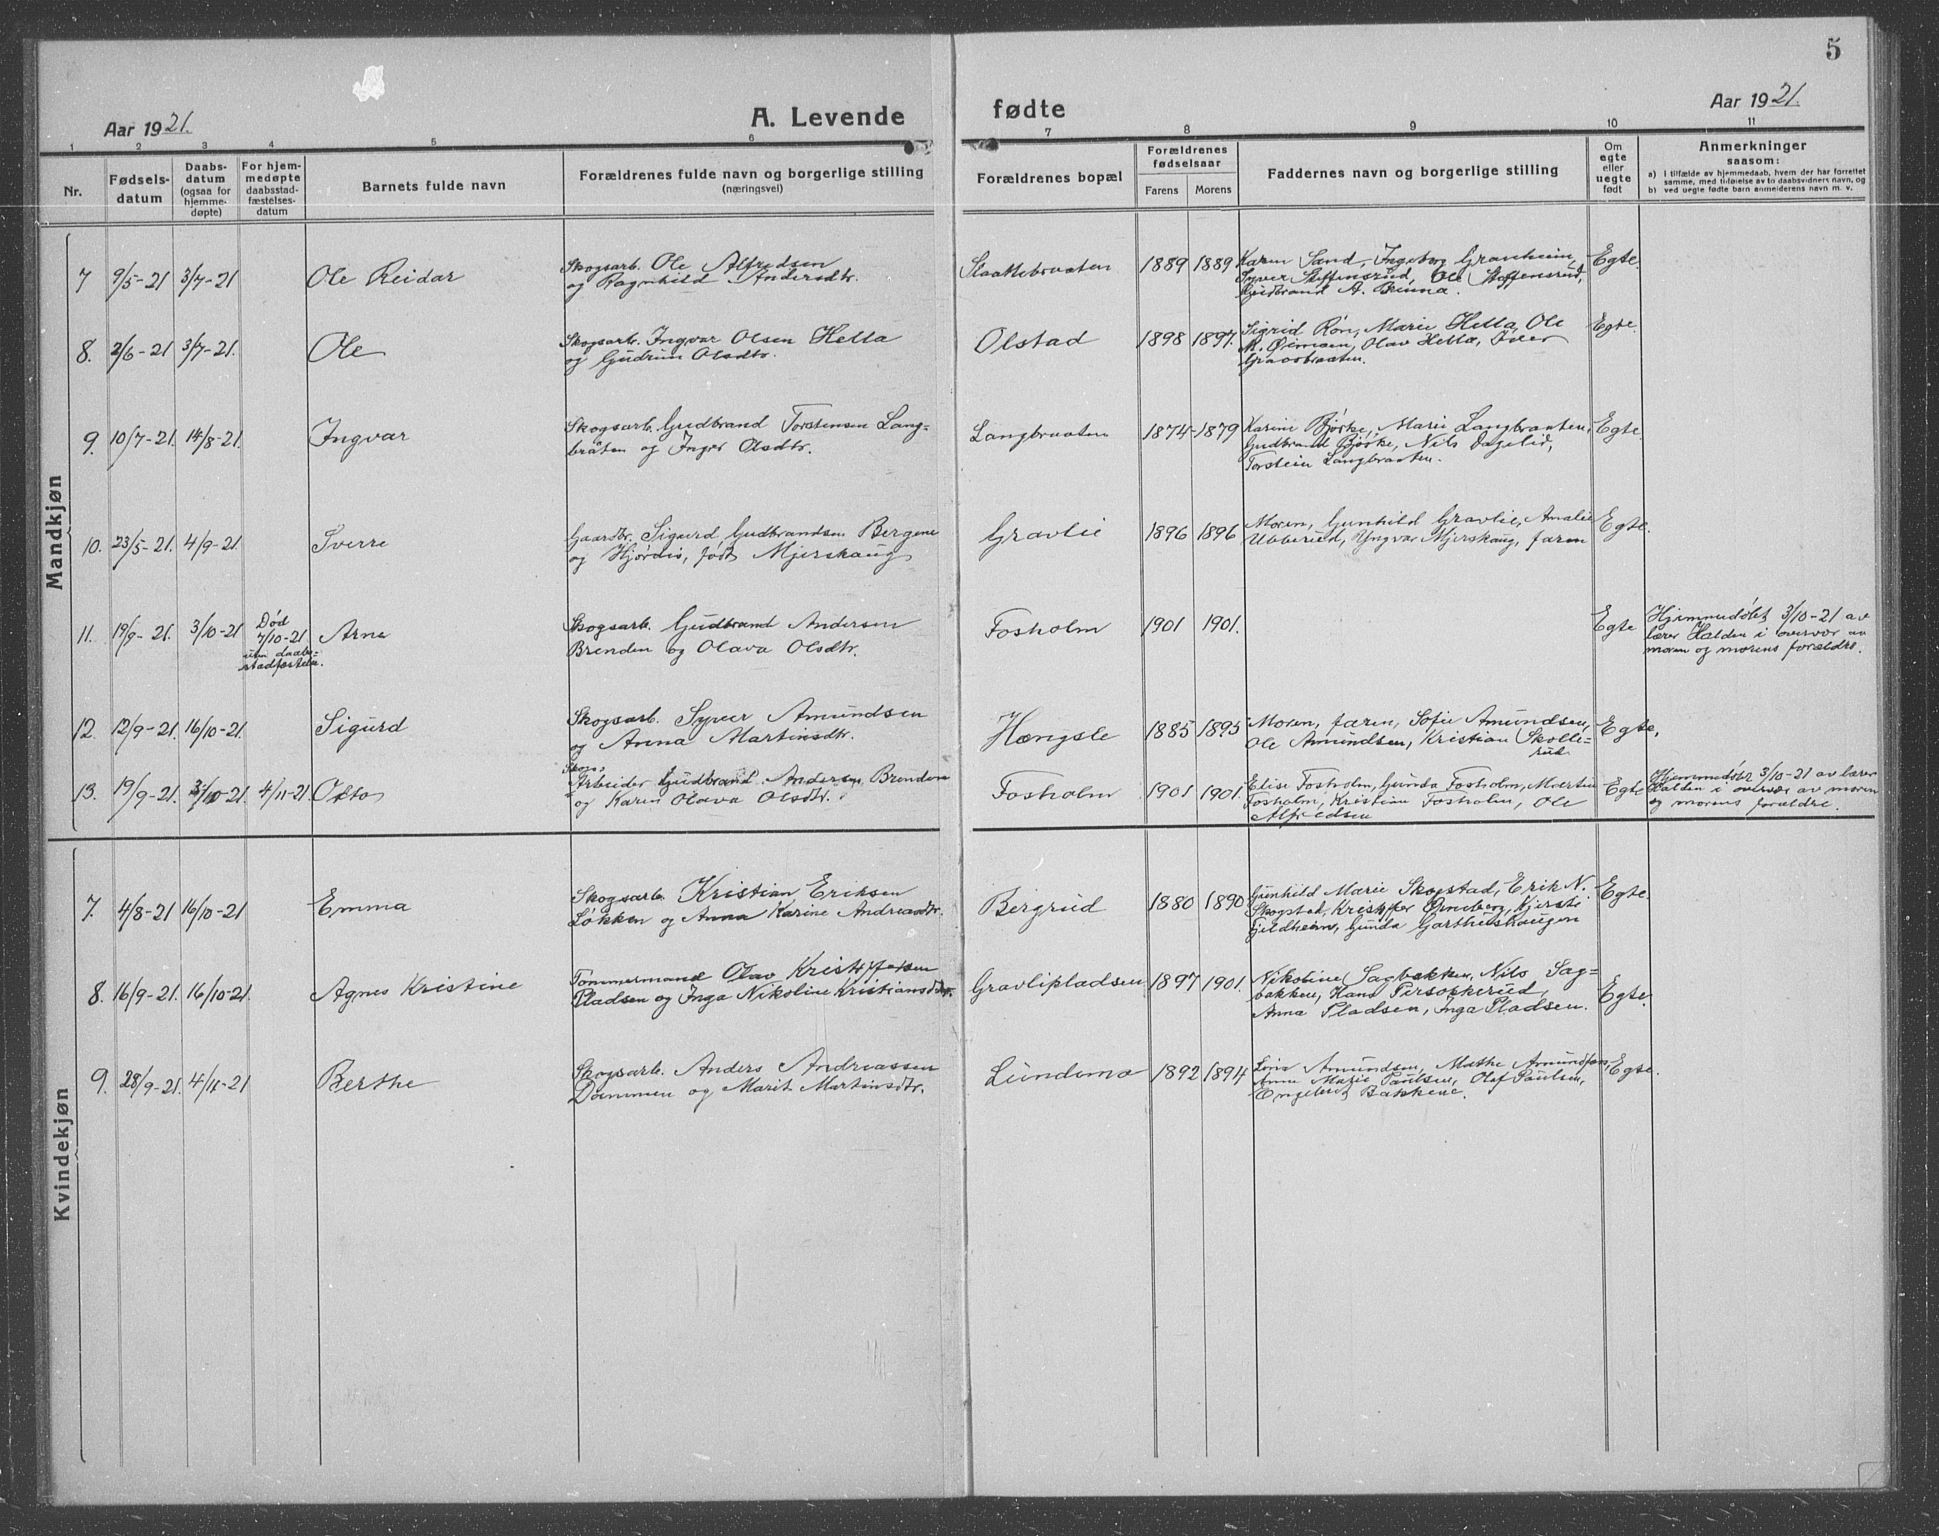 5
Aar 1921. A. Levende fødte Aar 1921.
1 2 3 4 5 6 7 8 9 10 11
Nr. Fødselsdatum Daabsdatum (ogsaa for hjemmedøpte) For hjemmedøpte daabsstadfæstelsesdatum Barnets fulde navn Forældrenes fulde navn og borgerlige stilling (næringsvei) Forældrenes bopæl Forældrenes fødselsaar Farens Morens Faddernes navn og borgerlige stilling Om egte eller uegte født Anmerkninger saasom:
a) I tilfælde av hjemmedaab, hvem der har forrettet samme, med tilføielse av to daabsvidners navn, og
b) ved uegte fødte barn anmelderens navn m. v.
Mandkjøn
7 9/5-21 3/7-21 Ole Reidar Skogsarb. Ole Alfredsen
og Ragnhild Andersdtr. Slaattebraaten 1889 1889 Karen Sand, Ingeborg Granheim,
Syver Steffensrud, Ole Steffensrud,
Gudbrand A. Egte.
8. 2/6-21 3/7-21. Ole Skogsarb. Ingvar Olsen Hella
og Gudrun Olsdtr. Olstad 1898 1897. Sigrid Røn, Marie Hella, Ole
M. Olav Hella, Iver
Egte.
9. 10/7-21. 14/8-21. Ingvar Skogsarb. Gudbrand Torstensen Lang=
bråten og Inger Olsdtr. Langbraaten 1874 1879 Karine Bjørke, Marie Langbraaten,
Gudbrand Bjørke, Nils Dagelid,
Torstein Langbraaten. Egte.
10. 23/5-21. 4/9-21. Sverre Gaardbr. Sigurd Gudbrandsen Bergene
og Hjørdis, født Mjerskaug Gravlie 1896 1896 Moren, Gunhild Gravlie, Amalie
Ubberud, Yngvar Mjerskaug, faren Egte.
11. 19/9-21. 3/10-21 Død
7/10-21
uten daabs-
stadfæstelse. Arne Skogsarb. Gudbrand Andersen
Brenden og Olava Olsdtr. Fosholm 1901 1901. Egte Hjemmedøbt 3/10-21 av
lærer Halden i overvær av
moren og morens forældre.
12. 12/9-21. 16/10-21. Sigurd Skogsarb. Syver Amundsen
og Anna Martinsdtr. Hængsle 1885 1895 Moren, faren, Sofie Amundsen,
Ole Amundsen, Kristian Skolle-
rud. Egte.
13. 19/9-21. 3/10-21. 4/11-21. Otto Skogs-
Arbeider Gudbrand Andersen Brenden
og Karen Olava Olsdtr. Fosholm 1901 1901. Elise Fosholm, Gunda Fosholm, Martin
Fosholm, Kristine Fosholm, Ole
Alfredsen Egte Hjemmedøbt 3/10-21 av lærer
Halden i overvær av moren
og morens forældre.
Kvindekjøn
7. 4/8-21 16/10-21 Emma Skogsarb. Kristian Eriksen
Løkken og Anna Karine Andreasdtr. Bergrud 1880 1890 Gunhild Marie Skogstad, Erik N.
Skogstad, Kristoffer Kjersti
Gunda Garthushaugen Egte.
8. 16/9-21. 16/10-21. Agnes Kristine Tømmermand Olav Kristoffersen
Pladsen og Inga Nikoline Kristiansdtr. Gravlipladsen 1897 1901. Nikoline Sagbakken, Nils Sag=
bakken, Hans
Anna Pladsen, Inga Pladsen. Egte.
9. 28/9-21. 4/11-21 Berthe Skogsarb. Anders Andreassen
Dammen og Marit Martinsdtr. Lundemo 1892 1894 Lina Amundsen, Mathe Amundsen,
Anne Marie Paulsen, Olaf Paulsen,
Engebret Bakkene. Egte.